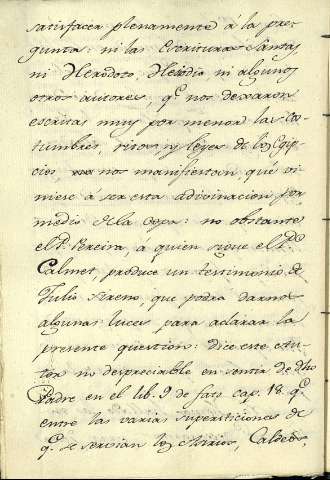 satisfacer plenamente á la pre-
gunta: ni las Escrituras Santas
ni Herodoto, Heliodo ni algunos
otros autores, q.e nos dexaron
escritas muy por menor las cos-
tumbres, ritos y leyes de los Egip-
cios, nos manifiestan qué vi-
niese á ser esta adivinacion por
medio de la copa: no obstante
el P. Pereira, á quien sigue el P.e
Calmet, produce un testimonio de
Julio Sireno, que podra darnos
algunas luces para aclarar la
presente question: dice este au-
tor no despreciable en sentir de dho
Padre en el lib. 9 de fato cap. 18. q.e
entre las varias supersticiones de
q.e se servian los Asirios, Caldeos,